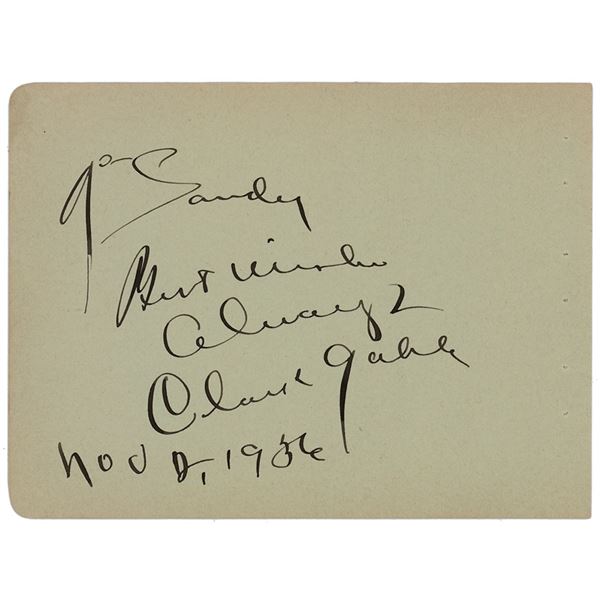 To Sandy
Best Wishes
Always
Clark Gable
Nov 2, 1936